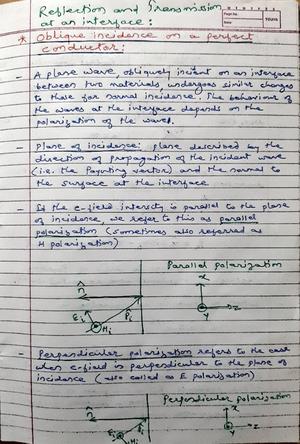 Reflection and Transmission
at an interface:
* Oblique incidence on a perfect
conductor:
- A plane wave, obliquely incident on an interface
between two materials, undergoes similar changes
to those for normal incidence. The behaviour of
the waves at the interface depends on the
polarization of the waves.
- Plane of incidence: plane described by the
direction of propagation of the incident wave
(i.e. the Poynting vector) and the normal to
the surface at the interface
- If the E-field intensity is parallel to the plane
of incidence, we refer to this as parallel
polarization (sometimes also referred as
H polarization)
Parallel polarization
x
n̂
z
y
Ei
Hi
Pi
- Perpendicular polarization refers to the case
when E-field is perpendicular to the plane of
incidence (also called as E polarization)
Perpendicular polarization
x
n̂
z
Ei
Pi
Hi